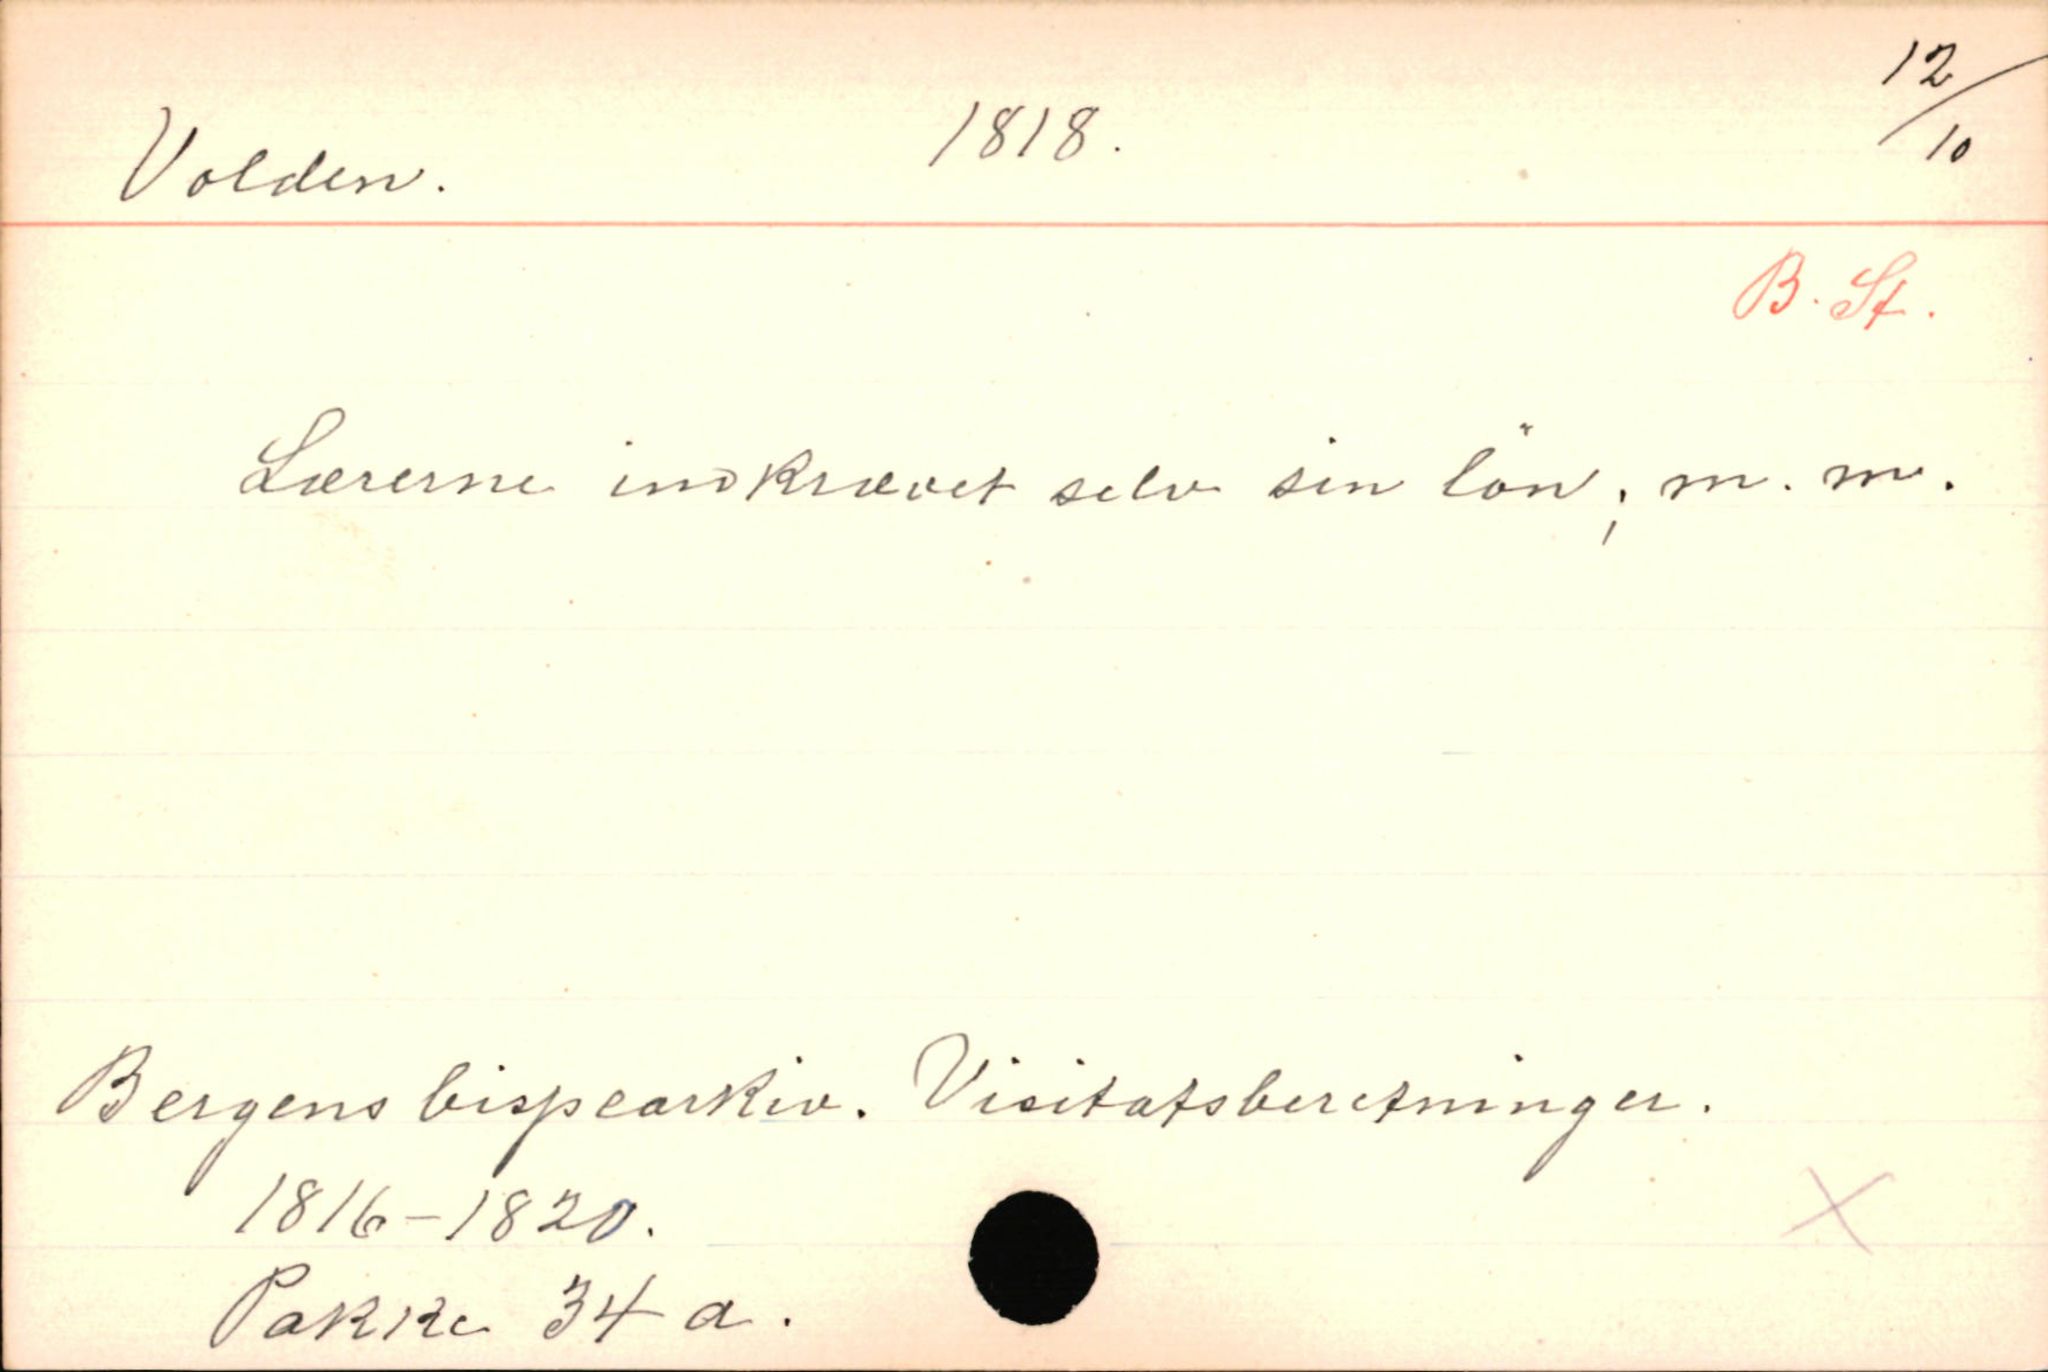 Volden. 1818. 12/10
B. St.
Lærerne indkrævet selv sin lön; m. m.
Bergens bispearkiv. Visitatsberetninger.
1816-1820.
Pakke 34 a.